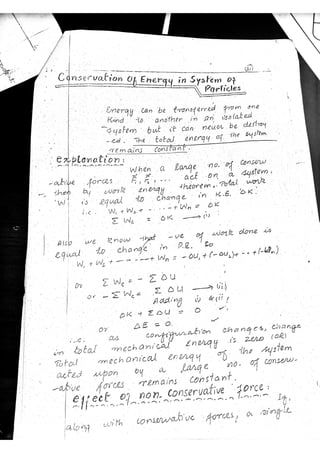 Conservation Of Energy in System of
Particles
Energy can be transferred from one
kind to another in an isolated
system but it can never be destroy
-ed. The total energy of the system
remains constant.
explanation:
When a large no. of conserv
-ative forces F₁, F₂ ... act on a system.
then by work energy theorem. Total work
'W' is equal to change in K.E 'ΔK'.
i.e. W₁ + W₂ + ------ + Wn = ΔK
Σ Wc = ΔK → (i)
Also we know that -ve of work done is
equal to change in P.E. so
W₁ + W₂ + ------ + Wn = -ΔU₁ + (-ΔU₂) + ... + (-ΔUn)
or Σ Wc = - Σ ΔU
or - Σ Wc = Σ ΔU → (ii)
Adding i & ii;
ΔK + Σ ΔU = 0
or ΔE = 0.
i.e. as configuration changes, change
in total mechanical energy is zero (OR)
Total mechanical energy of the system
acted upon by a large no. of conserv-
-ative forces remains constant.
effect of non. conservative force:
If,
along with conservative forces, a single